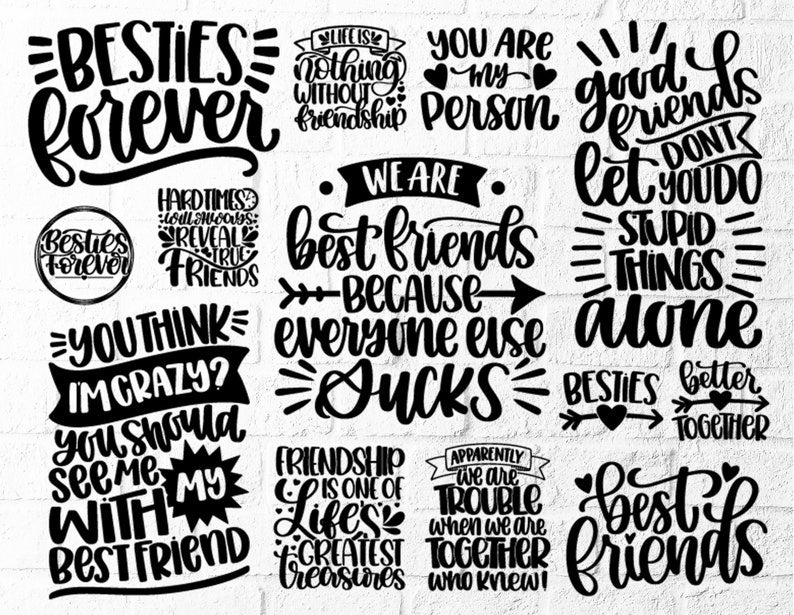 BESTIES
forever
LIFE IS
nothing
WITHOUT
friendship
YOU ARE
my
Person
good
friends
DONT
let YOU DO
STUPID
THINGS
alone
Besties
Forever
HARD TIMES
will Always
REVEAL
TRUE
FRIENDS
WE ARE
best friends
BECAUSE
everyone else
Sucks
YOU THINK
I'M CRAZY?
you should
see me
WITH MY
BEST FRIEND
BESTIES
better
TOGETHER
FRIENDSHIP
IS ONE OF
Life's
GREATEST
treasures
APPARENTLY
we are
TROUBLE
when we are
TOGETHER
who knew!
best
friends